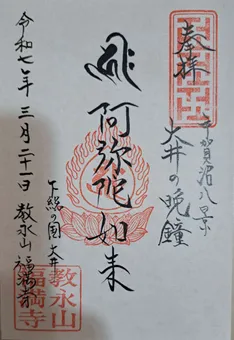 奉拝
手賀沼八景
大井の晩鐘
阿弥陀如来
下総の国 大井
令和七年 三月二十一日 教永山 福満寺
教永山
福満寺